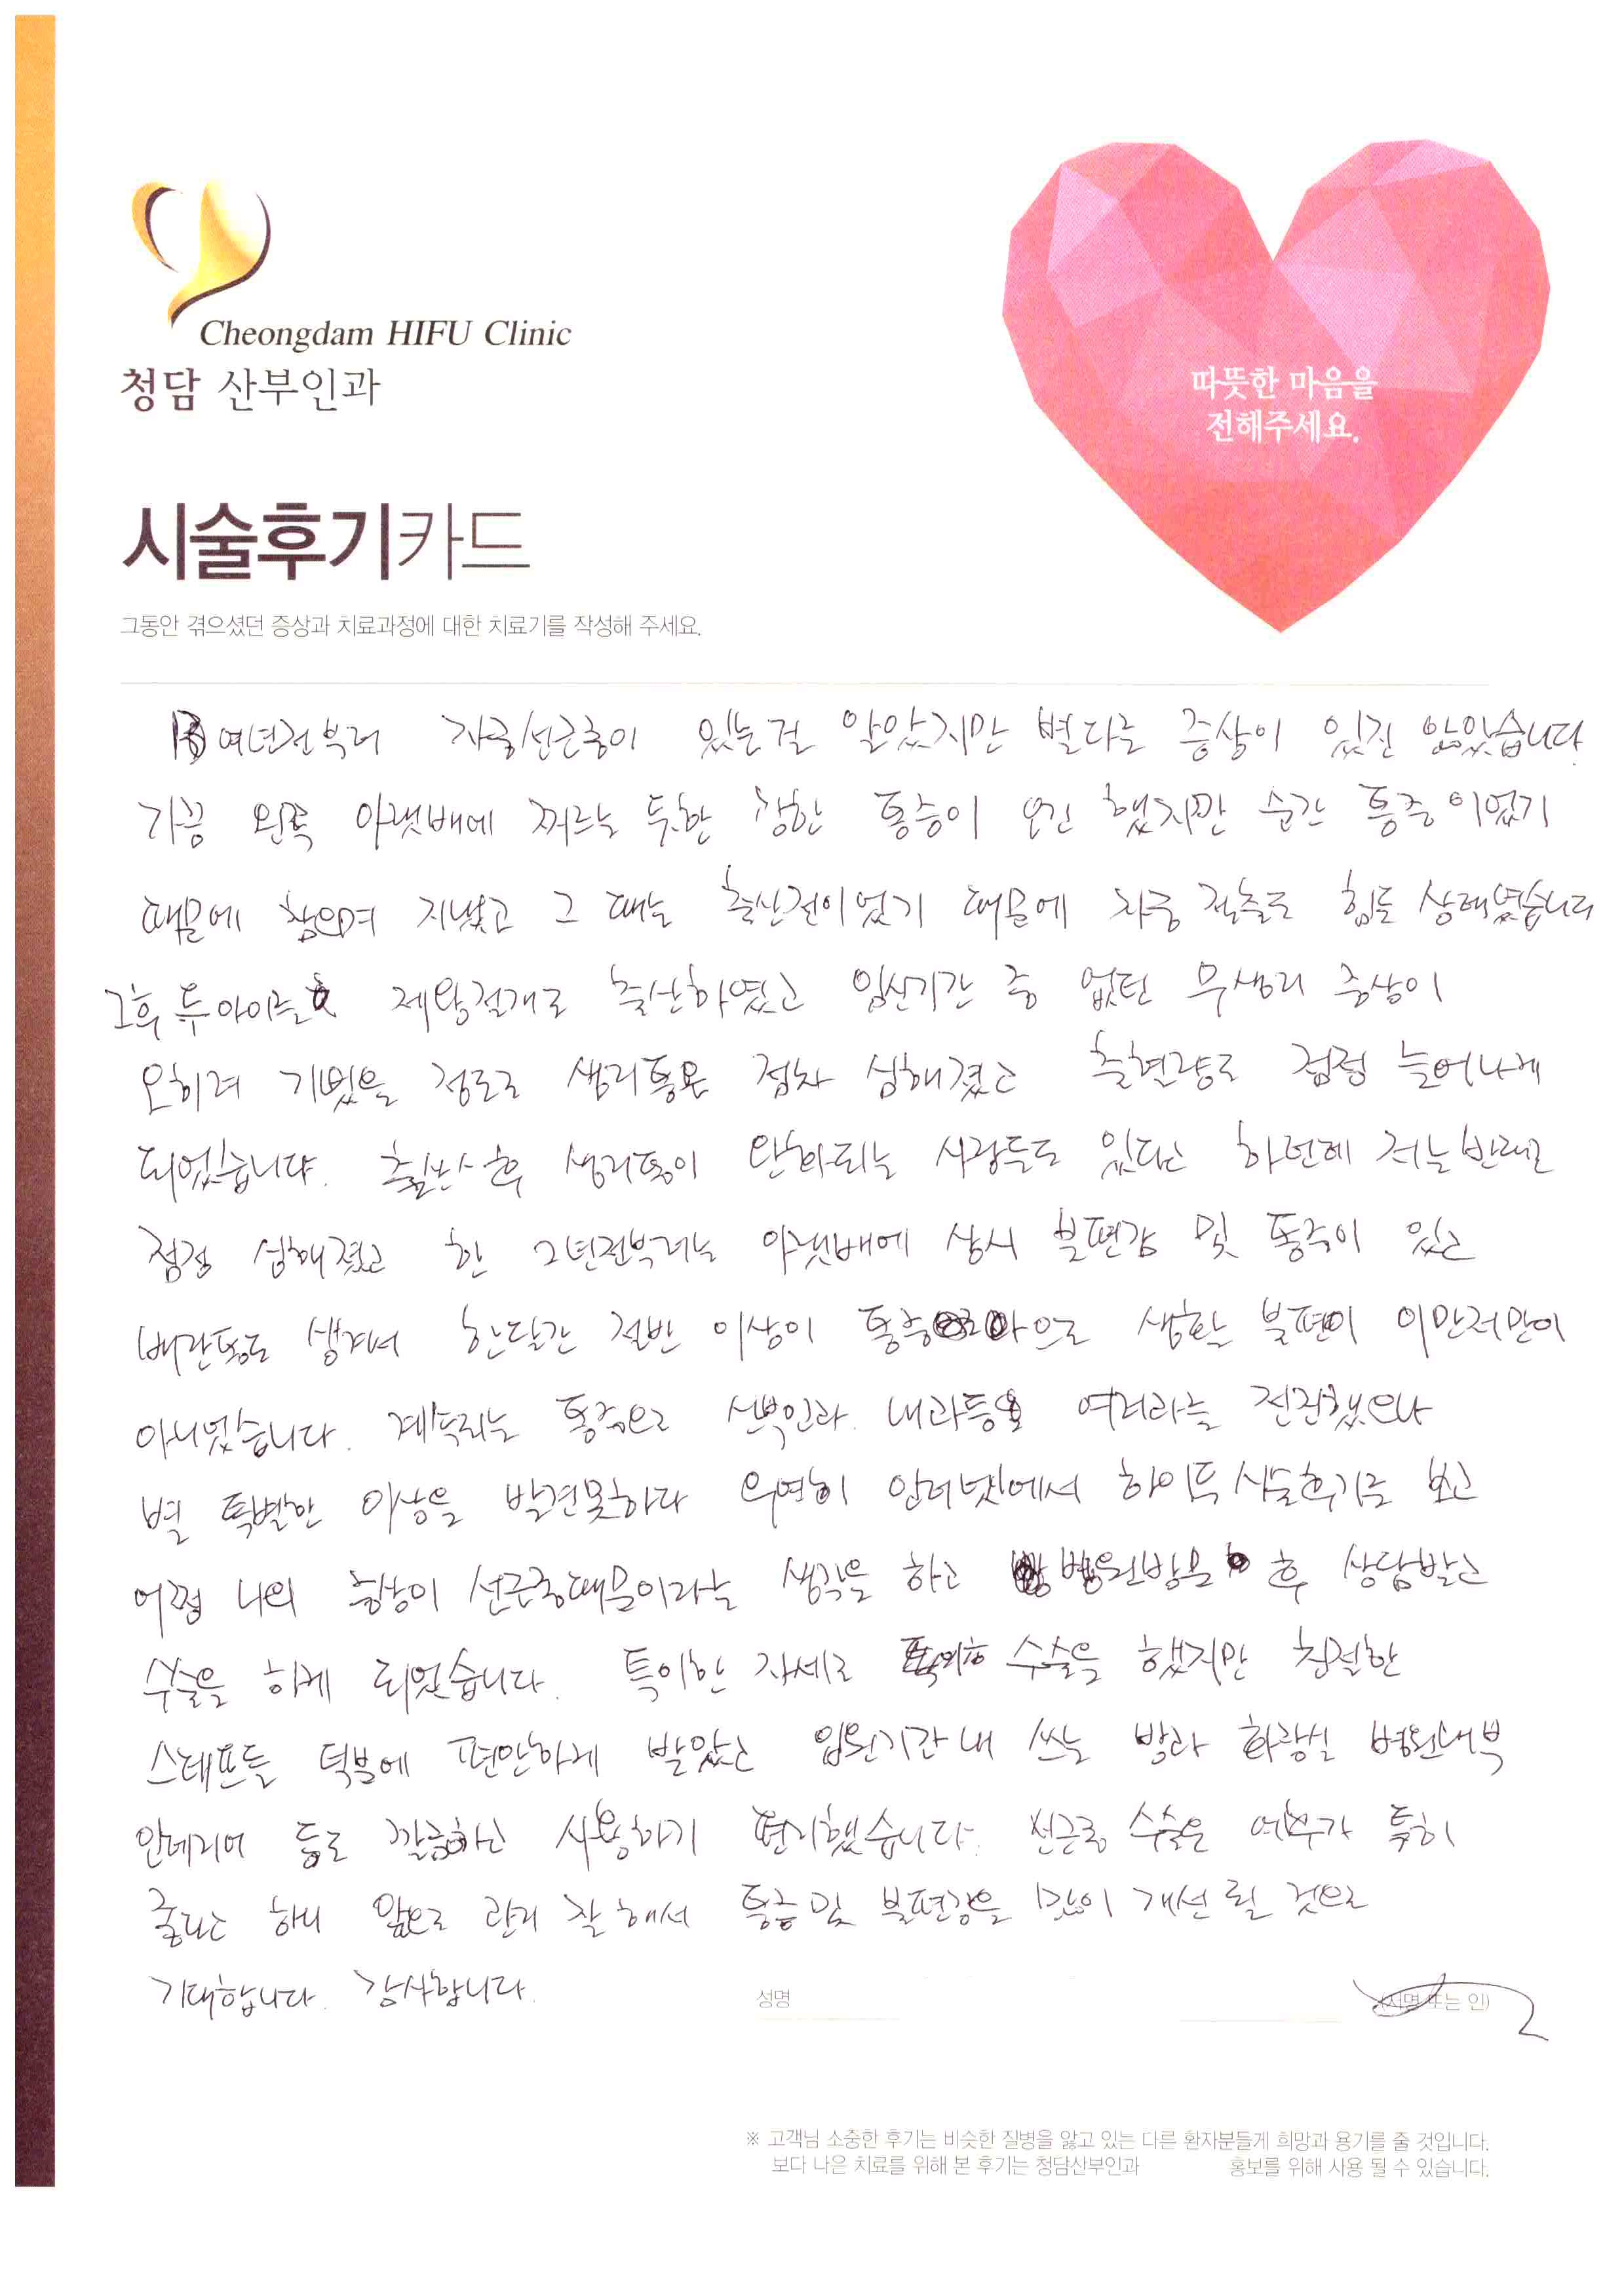 Cheongdam HIFU Clinic
청담 산부인과
따뜻한 마음을
전해주세요.
시술후기카드
그동안 겪으셨던 증상과 치료과정에 대한 치료기를 작성해 주세요.
여년전부터 자궁선근증이 있는걸 알았지만 별다른 증상이 있진 않았습니다.
가끔 왼쪽 아랫배에 찌르는 듯한 통증이 오긴 했지만 순간 통증이었기
때문에 참으며 지냈고 그 때는 출산전이었기 때문에 자궁 적출도 힘든 상태였습니다
그후 두아이를 제왕절개로 출산하였고 임신기간 중 없던 무생리 증상이
오히려 기뻤을 정도로 생리통은 점차 심해졌고 출혈량도 점점 늘어나게
되었습니다. 출산후 생리통이 완화되는 사람들도 있다고 하던데 저는 반대로
점점 심해졌고 한 2년전부터는 아랫배에 상시 불편감 및 통증이 있고
배란통도 생겨서 한달간 절반 이상이 통증으로 생활 불편이 이만저만이
아니었습니다. 계속되는 통증으로 산부인과. 내과등을 여러과를 전전했으나
별 특별한 이상을 발견못하다 우연히 인터넷에서 하이푸 시술후기를 보고
어쩜 나의 증상이 선근증때문이라는 생각을 하고 병원방문 후 상담받고
수술을 하게 되었습니다. 특이한 자세로 수술을 했지만 친절한
스태프들 덕분에 편안하게 받았고 입원기간내 쓰는 방과 화장실 병원내부
인테리어 등도 깔끔하고 사용하기 편리했습니다. 선근증 수술은 예후가 특히
좋다고 하니 앞으로 관리 잘 해서 통증 및 불편감을 많이 개선 될 것으로
기대합니다. 감사합니다.
성명
(서명 또는 인)
※ 고객님 소중한 후기는 비슷한 질병을 앓고 있는 다른 환자분들게 희망과 용기를 줄 것입니다.
보다 나은 치료를 위해 본 후기는 청담산부인과 홍보를 위해 사용 될 수 있습니다.